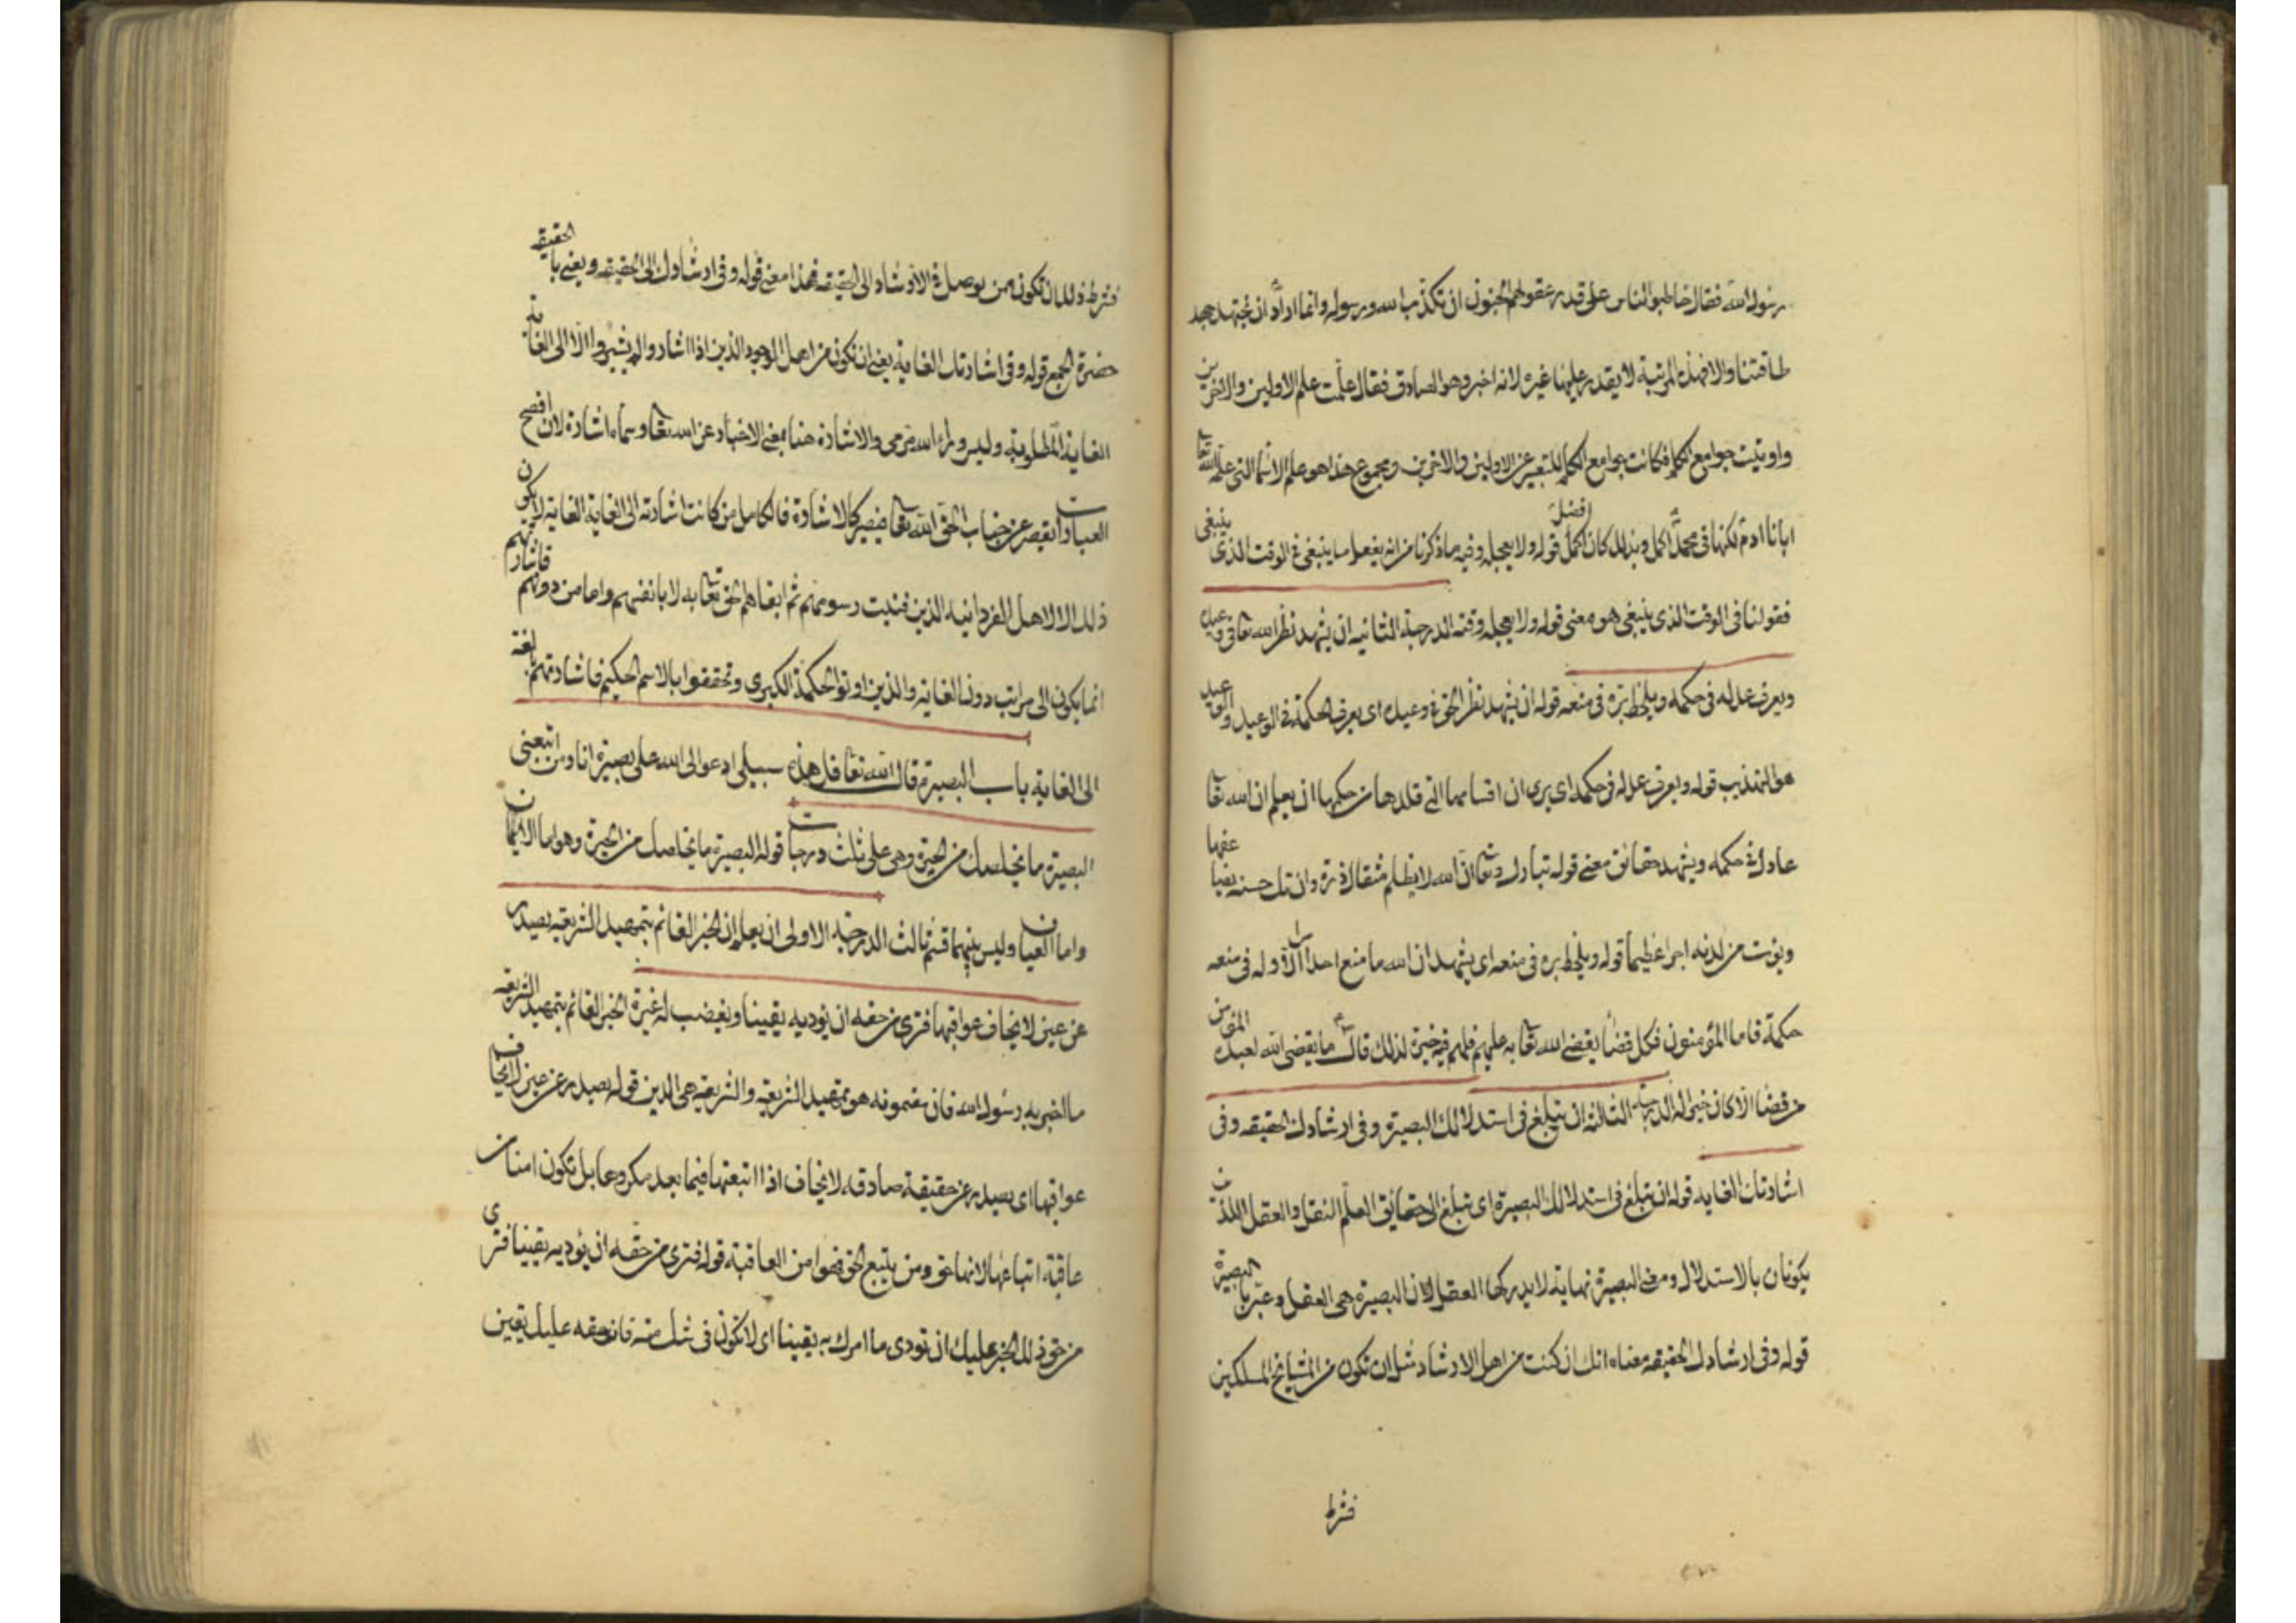 رسول الله فقال خاطبوا الناس على قدر عقولهم اتحبون ان يكذب الله ورسوله وانما اراد ان يجتهد جهد
طاقتنا والا فهذه المرتبة لا يقدر عليها غيره لانه اخبر وهو الصادق فقال علمت علم الاولين والاخرين
واوتيت جوامع الكلم فكانت جوامع الكلم للتعبير عن الاولين والاخرين ومجموع هذا هو علم الاسماء التى علمه الله تعا
ابانا ادم لكنها فى محمد اكمل وبذلك كان اكمل افضل قوله ولا يعجله وفيه ما ذكرنا من انه يفعل ما ينبغى فى الوقت الذى ينبغى
فقولنا فى الوقت الذى ينبغى هو معنى قوله ولا يعجله وقته الدرجة الثانيه ان يشهد نظر الله تعا فى وعيده
ويعرف عدله فى حكمه ويلحظ بره فى منعه قوله ان يشهد نظر الحق فى وعيده اى يعرف الحكمة فى الوعيد والوعيد
هو التهذيب قوله ويعرف عدله فى حكمه اى يرى ان اقسامها التى قلدها من حكمها ان يعلم ان الله تعا
عادل فى حكمه ويشهد حقائق معنى قوله تبارك وتعا ان الله لا يظلم مثقال ذرة وان تك حسنه يضاعفها
ويؤت من لدنه اجرا عظيما قوله ويلحظ بره فى منعه اى يشهد ان الله ما منع احدا الا وله فى منعه
حكمة فاما المؤمنون فكل قضا يقضى الله تعا به عليهم فلهم فيه خيرة لذلك قال ما يقضى الله لعبده المؤمن
من قضا الا كان خيرا له الدرجة الثالثة ان تبلغ فى استدلالك البصيرة وفى ارشادك الحقيقه وفى
اشارتك الغايه قوله ان تبلغ فى استدلالك البصيرة اى تبلغ الى حقائق العلم النقل والعقل اللذين
يكونان بالاستدلال ومعنى البصيرة نهاية لا يدركها العقل لان البصيرة هى العقل وعبر بالبصيرة
قوله وفى ارشادك الحقيقه معناه انك ان كنت من اهل الارشاد مثل ان تكون من المشايخ المسلكين
فشرط
فشرط ذلك ان تكون ممن يوصل فى الارشاد الى الحقيقه فهذا معنى قوله وفى ارشادك الى الحقيقه ويعنى بالحقيقه
حضرة الجمع قوله وفى اشارتك الغاية يعنى ان تكون من اهل الوجود الذين اذا اشاروا لم يشيروا الا الى الغاية
الغاية المطلوبة وليس وراء الله مرمى والاشارة هنا بمعنى الاخبار عن الله تعا وسماه اشارة لان افصح
العبارات يقصر عن جناب الحق الله تعا فيصير كالاشارة فالكامل من كانت اشارته الى الغاية الغاية لا يكون
ذلك الا لاهل الفردانيه الذين فنيت رسومهم ثم ابقاهم الحق تعا به لا بانفسهم واما من دونهم فاشارتهم
انما يكون الى مراتب دون الغاية والذين اوتوا الحكمة الكبرى وتحققوا بالاسم الحكيم فاشارتهم بالغة
الى الغاية باب البصيرة قال الله تعا قل هذه سبيلى ادعو الى الله على بصيرة انا ومن اتبعنى
البصيرة ما يخلصك من الحيرة وهى على ثلث درجات قوله البصيرة ما يخلصك من الحيرة وهو اما الايمان
واما العيان وليس بينهما قسم ثالث الدرجة الاولى ان يعلم ان الخبر القائم بتمهيد الشريعه يصدر
عن عين لا يخاف عواقبها فترى من حقه ان يؤديه يقينا ويغضب له غيرة الخبر القائم بتمهيد الشريعه
ما اخبر به رسول الله فان مضمونه هو تمهيد الشريعة والشريعة هى الدين قوله يصدر عن عين لا يخاف
عواقبها اى يصدر عن حقيقة صادقه لا يخاف اذا اتبعتها فيما بعد مكروها بل تكون امنا من
عاقبة اتباعها لانها حق ومن يتبع الحق فهو امن العاقبة قوله فترى من حقه ان يؤديه يقينا فترى
من حق ذلك الخبر عليك ان تودى ما امرك به يقينا اى لا تكون فى شك منه فان حقه عليك يقين